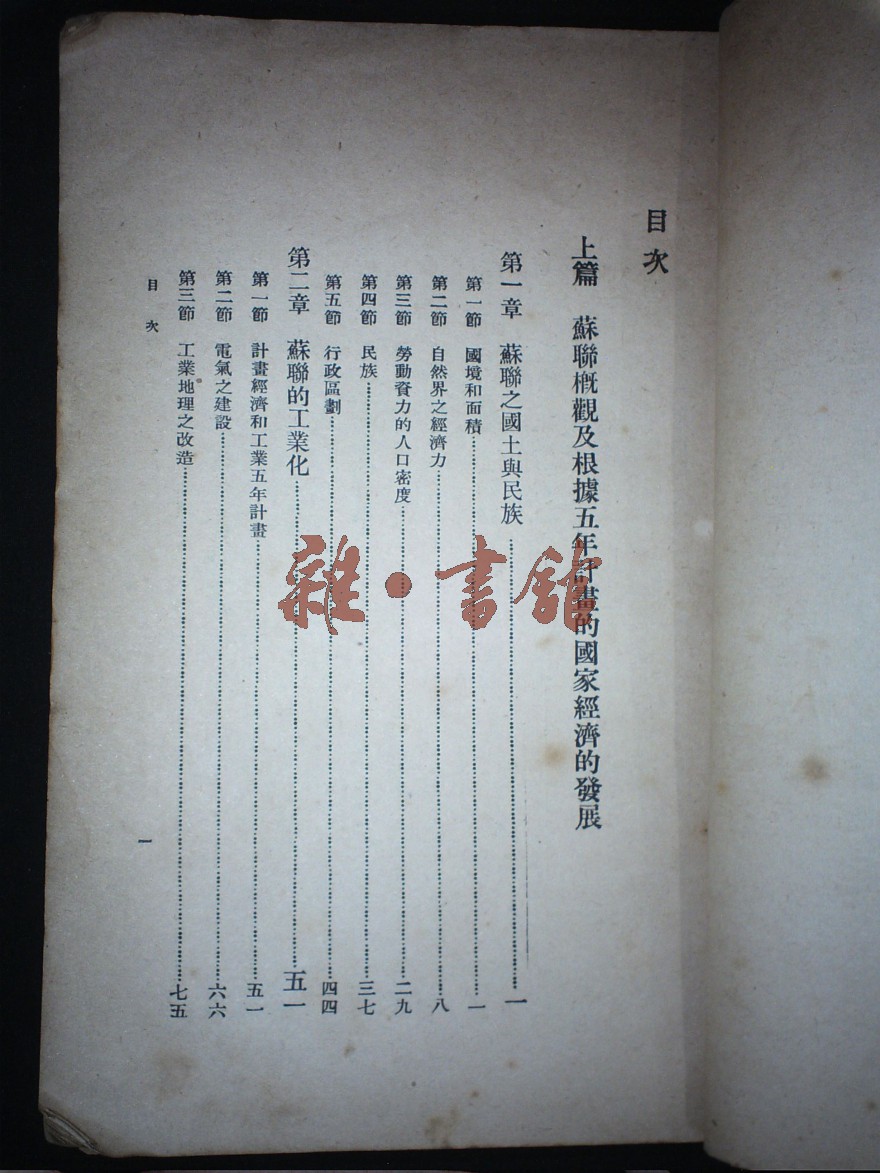 目次
上篇 蘇聯槪觀及根據五年計畫的國家經濟的發展
第一章 蘇聯之國土與民族……一
第一節 國境和面積……一
第二節 自然界之經濟力……八
第三節 勞動資力的人口密度……二九
第四節 民族……三七
第五節 行政區劃……四四
第二章 蘇聯的工業化……五一
第一節 計畫經濟和工業五年計畫……五一
第二節 電氣之建設……六六
第三節 工業地理之改造……七五
目次 一
雜·書館